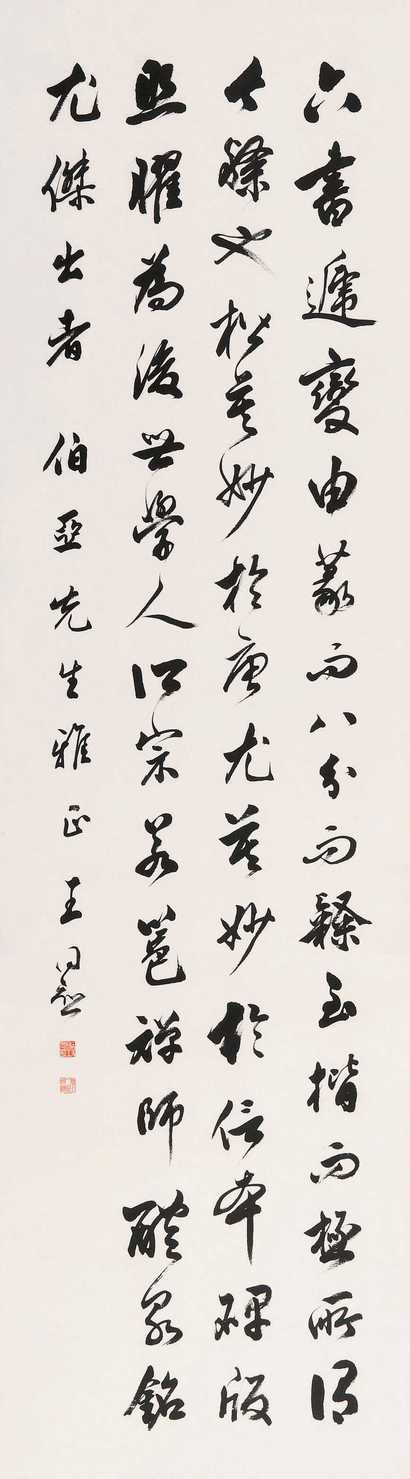 六書遞變由篆而八分而隸至楷而極所謂
今隸也楷莫妙於唐尤莫妙於信本碑版
照曜為後世學人所宗若邕禪師醴泉銘
尤傑出者 伯亞先生雅正 王同愈